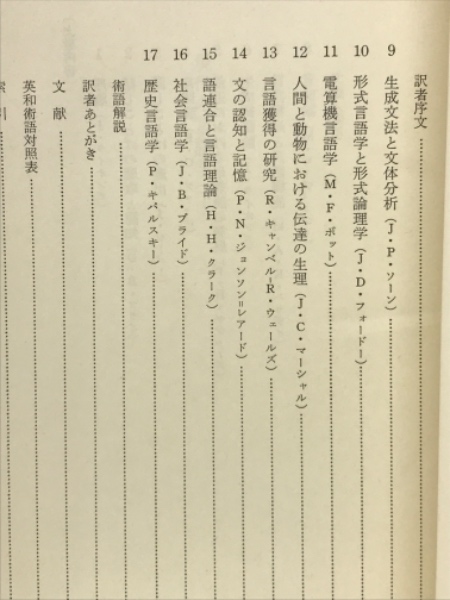 訳者序文
9 生成文法と文体分析(J・P・ソーン)
10 形式言語学と形式論理学(J・D・フォードー)
11 電算機言語学(M・F・ボット)
12 人間と動物における伝達の生理(J・C・マーシャル)
13 言語獲得の研究(R・キャンベル=R・ウェールズ)
14 文の認知と記憶(P・N・ジョンソン=レアード)
15 語連合と言語理論(H・H・クラーク)
16 社会言語学(J・B・プライド)
17 歴史言語学(P・キパルスキー)
術語解説
訳者あとがき
文献
英和術語対照表
索引